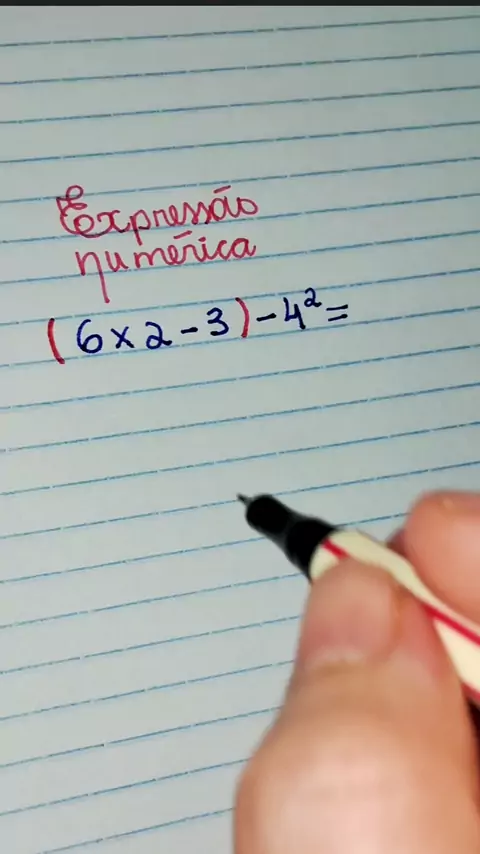 Expressão
numérica
(6 × 2 - 3) - 4² =